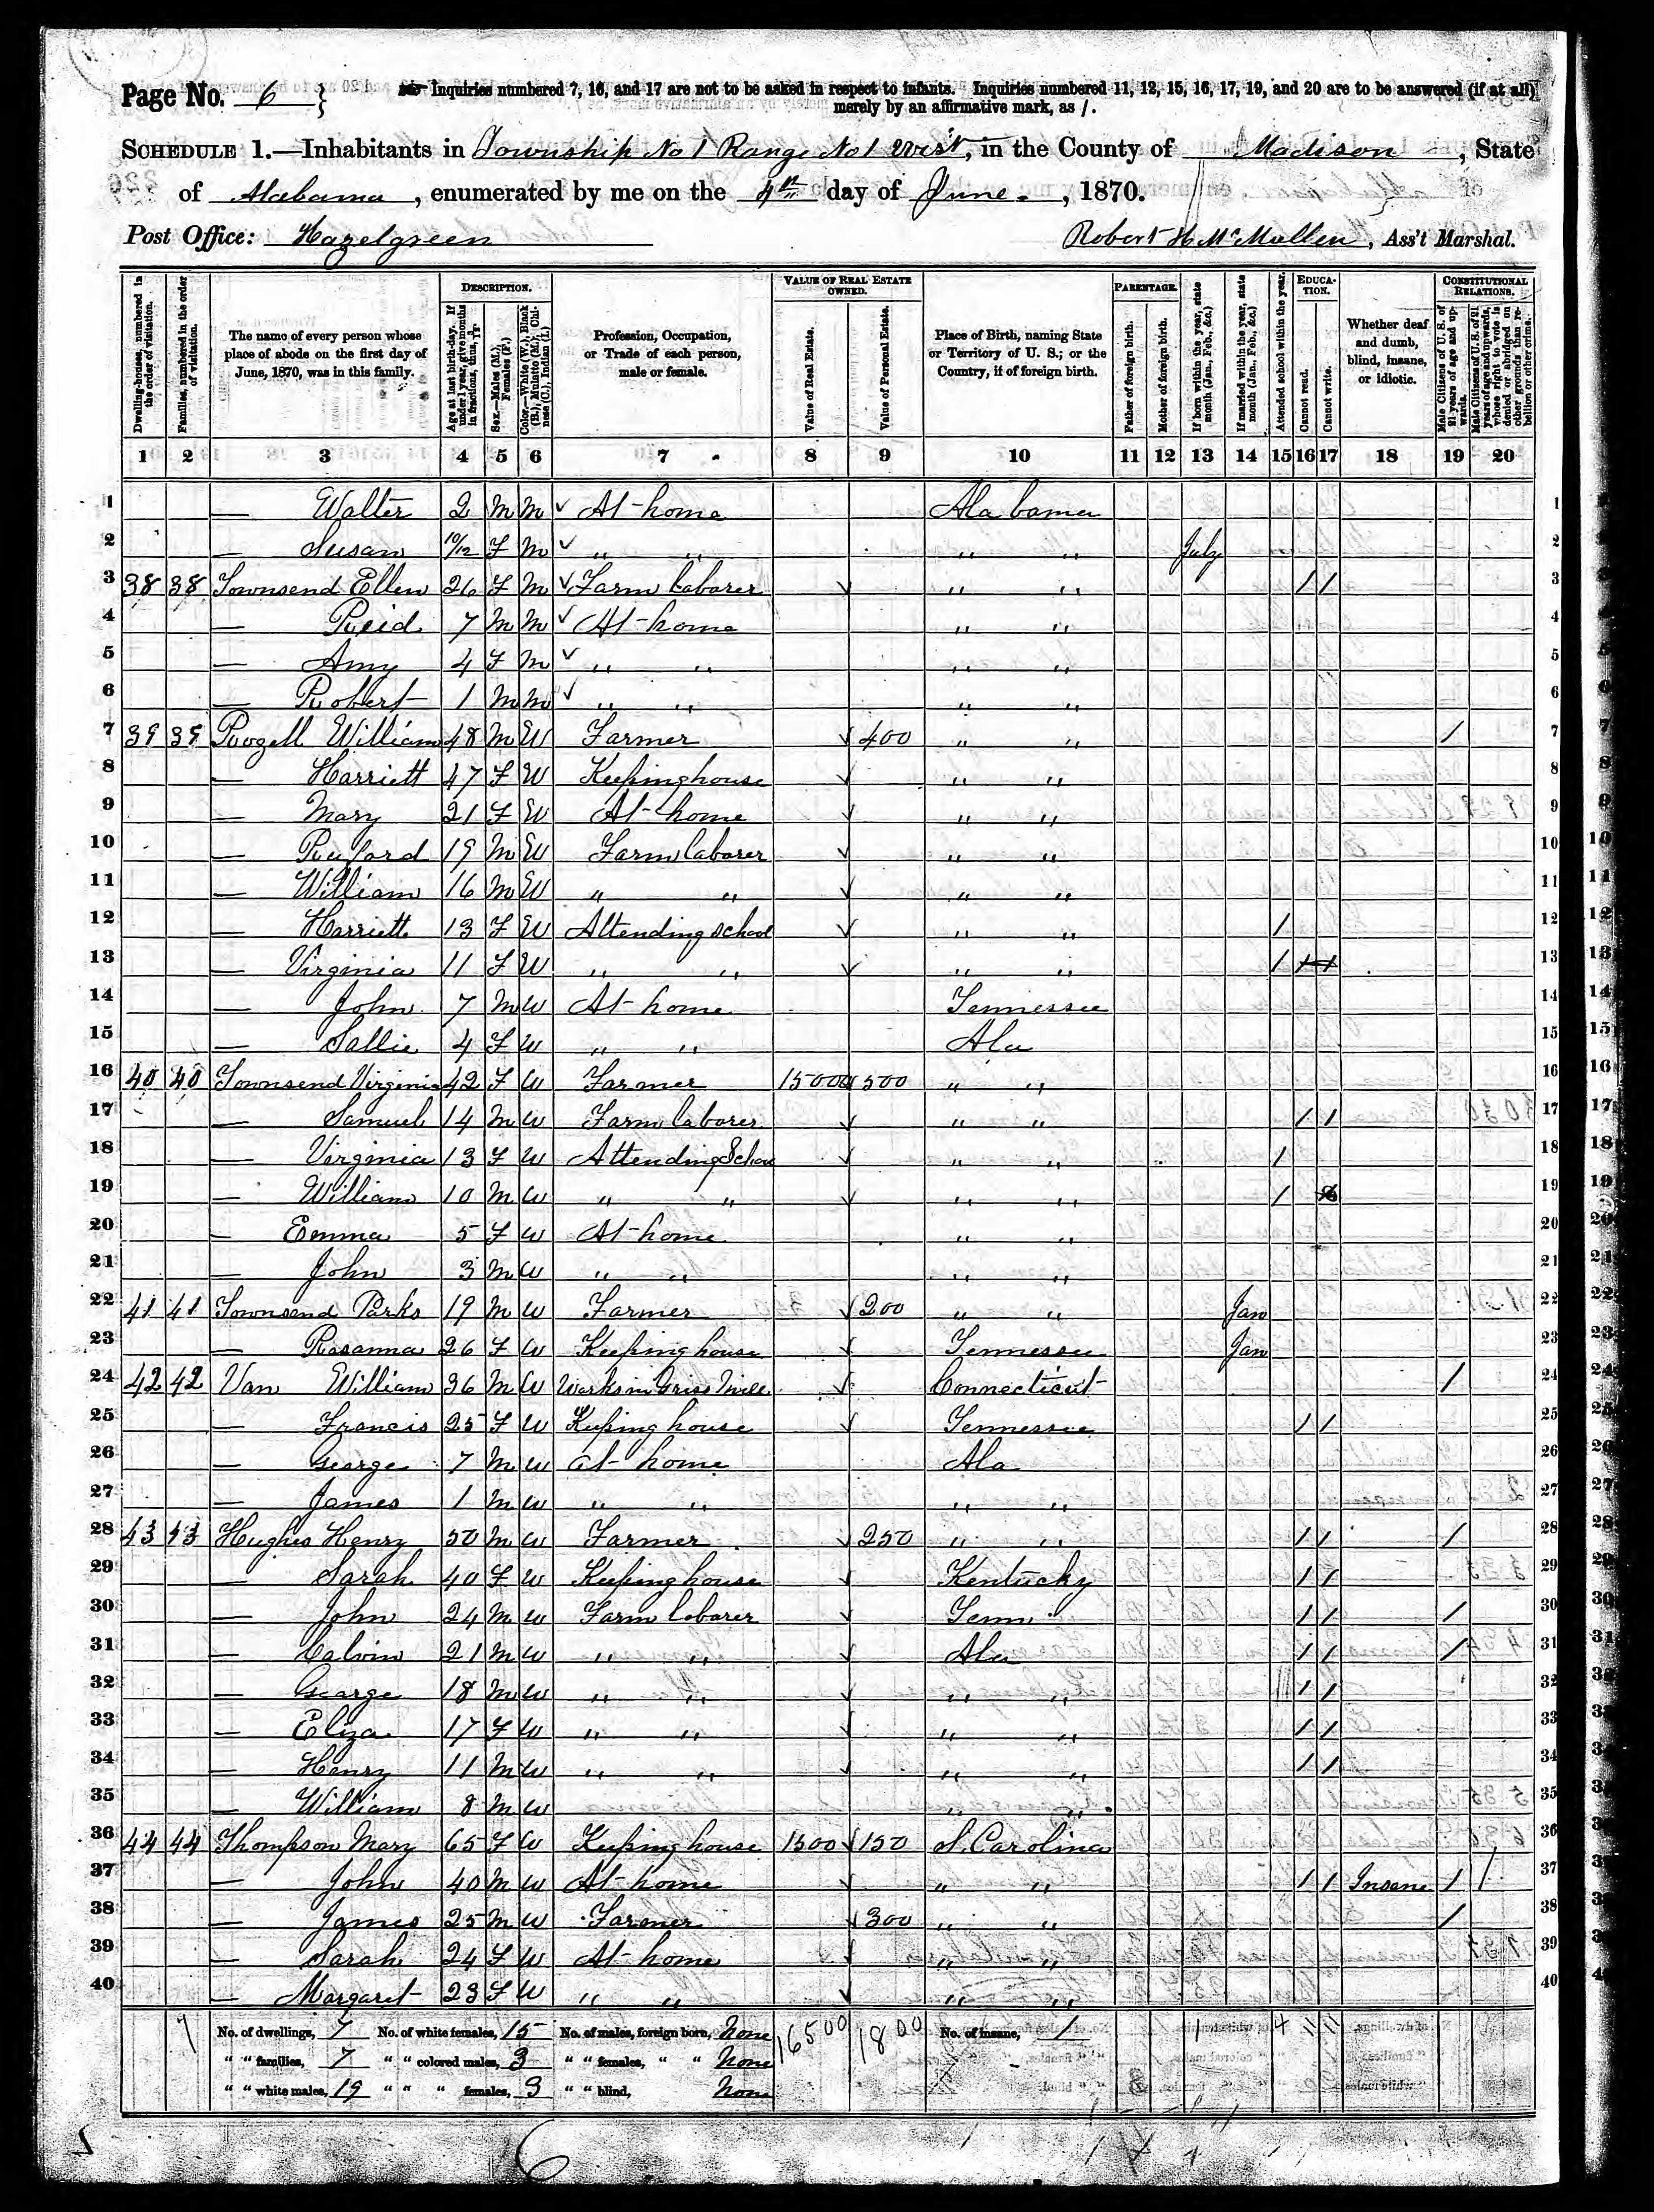 Page No. 6 } Inquiries numbered 7, 16, and 17 are not to be asked in respect to infants. Inquiries numbered 11, 12, 15, 16, 17, 19, and 20 are to be answered (if at all)
merely by an affirmative mark, as /.
SCHEDULE 1.—Inhabitants in Township No 1 Range No 1 West, in the County of Madison, State
of Alabama, enumerated by me on the 4th day of June., 1870.
Post Office: Hazelgreen Robert H McMullen, Ass't Marshal.
Dwelling-houses, numbered in the order of visitation.
Families, numbered in the order of visitation.
The name of every person whose place of abode on the first day of June, 1870, was in this family.
DESCRIPTION.
Age at last birth-day. If under 1 year, give months in fractions, thus, 3/12
Sex.—Males (M.), Females (F.)
Color.—White (W.), Black (B.), Mulatto (M.), Chinese (C.), Indian (I.)
Profession, Occupation, or Trade of each person, male or female.
VALUE OF REAL ESTATE OWNED.
Value of Real Estate.
Value of Personal Estate.
Place of Birth, naming State or Territory of U. S.; or the Country, if of foreign birth.
PARENTAGE.
Father of foreign birth.
Mother of foreign birth.
If born within the year, state month (Jan., Feb., &c.)
If married within the year, state month (Jan., Feb., &c.)
Attended school within the year.
EDUCATION.
Cannot read.
Cannot write.
Whether deaf and dumb, blind, insane, or idiotic.
CONSTITUTIONAL RELATIONS.
Male Citizens of U. S. of 21 years of age and upwards.
Male Citizens of U. S. of 21 years of age and upwards, whose right to vote is denied or abridged on other grounds than rebellion or other crime.
1 2 3 4 5 6 7 8 9 10 11 12 13 14 15 16 17 18 19 20
1 — Walter 2 M M ✓ At home Alabama 1
2 — Susan 10/12 F M ✓ " " " " July 2
3 38 38 Townsend Ellen 26 F M ✓ Farm laborer ✓ " " / / 3
4 — Reid 7 M M ✓ At home " " 4
5 — Amy 4 F M ✓ " " " " 5
6 — Robert 1 M M ✓ " " " " 6
7 39 39 Rozell William 48 M W Farmer ✓ 400 " " / 7
8 — Harriett 47 F W Keeping house ✓ " " 8
9 — Mary 21 F W At home ✓ " " 9
10 — Ruford 19 M W Farm laborer ✓ " " 10
11 — William 16 M W " " ✓ " " 11
12 — Harriett 13 F W Attending school ✓ " " / 12
13 — Virginia 11 F W " " ✓ " " / 13
14 — John 7 M W At home Tennessee 14
15 — Sallie 4 F W " " Ala 15
16 40 40 Townsend Virginia 42 F W Farmer 15000 500 " " 16
17 — Samuel 14 M W Farm laborer ✓ " " / / 17
18 — Virginia 13 F W Attending School ✓ " " / 18
19 — William 10 M W " " ✓ " " / 19
20 — Emma 5 F W At home " " 20
21 — John 3 M W " " " " 21
22 41 41 Townsend Parks 19 M W Farmer ✓ 200 " " Jan 22
23 — Rosanna 26 F W Keeping house ✓ Tennessee Jan 23
24 42 42 Van William 36 M W Works in Griss Mill ✓ Connecticut / 24
25 — Francis 25 F W Keeping house ✓ Tennessee / / 25
26 — George 7 M W at home Ala 26
27 — James 1 M W " " " " 27
28 43 43 Hughes Henry 50 M W Farmer ✓ 250 " " / / / 28
29 — Sarah 40 F W Keeping house ✓ Kentucky / / 29
30 — John 24 M W Farm laborer ✓ Tenn / / / 30
31 — Calvin 21 M W " " ✓ Ala / / / 31
32 — George 18 M W " " ✓ " " / / 32
33 — Eliza 17 F W " " ✓ " " / / 33
34 — Henry 11 M W " " ✓ " " / / 34
35 — William 8 M W " " 35
36 44 44 Thompson Mary 65 F W Keeping house 1500 ✓ 150 S. Carolina 36
37 — John 40 M W At home ✓ " " / / Insane / / 37
38 — James 25 M W Farmer ✓ 300 " " / 38
39 — Sarah 24 F W At home ✓ " " 39
40 — Margaret 23 F W " " ✓ " " 40
No. of dwellings, 7 No. of white females, 15 No. of males, foreign born, None 16500 1800 No. of insane, 1
" " families, 7 " " colored males, 3 " " females, " " None
" " white males, 19 " " " females, 3 " " blind, None
6